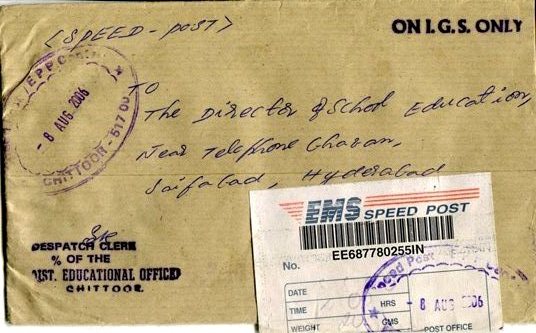 <SPEED - POST>
ON I.G.S. ONLY
- 8 AUG 2006
CHITTOOR - 517 00
TO
The Director of School Education,
Near Telephone Bhavan,
Saifabad, Hyderabad
EMS SPEED POST
EE687780255IN
No.
DATE
TIME
HRS
- 8 AUG 2006
WEIGHT
GMS
POST OFFICE
DESPATCH CLERK
% OF THE
DIST. EDUCATIONAL OFFICE
CHITTOOR.